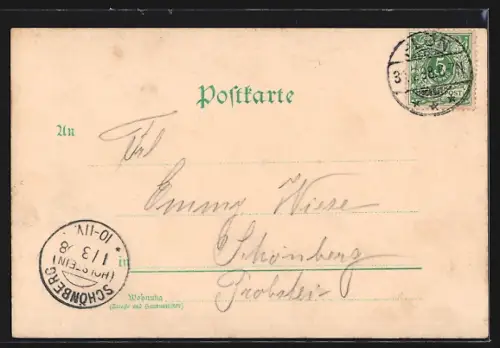 Postkarte
5
An
Frl
Emma Wiese
in
Schönberg
Probstei
Wohnung
(Straße und Hausnummer)
SCHÖNBERG
(HOLSTEIN)
1/3 98
10-11V.